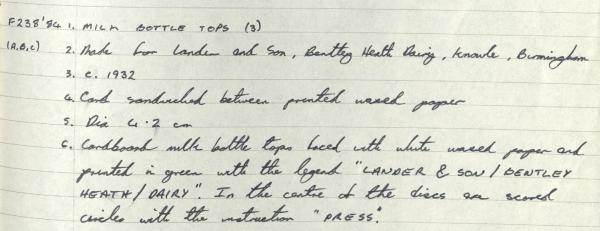 F238'84 1. MILK BOTTLE TOPS (3)
(A,B,C) 2. Made for Lander and Son, Bentley Heath Dairy, Knowle, Birmingham
3. c. 1932
4. Card sandwiched between printed waxed paper
5. Dia 4.2 cm
6. Cardboard milk bottle tops faced with white waxed paper and
printed in green with the legend "LANDER & SON / BENTLEY
HEATH / DAIRY". In the centre of the discs are scored
circles with the instruction "PRESS".